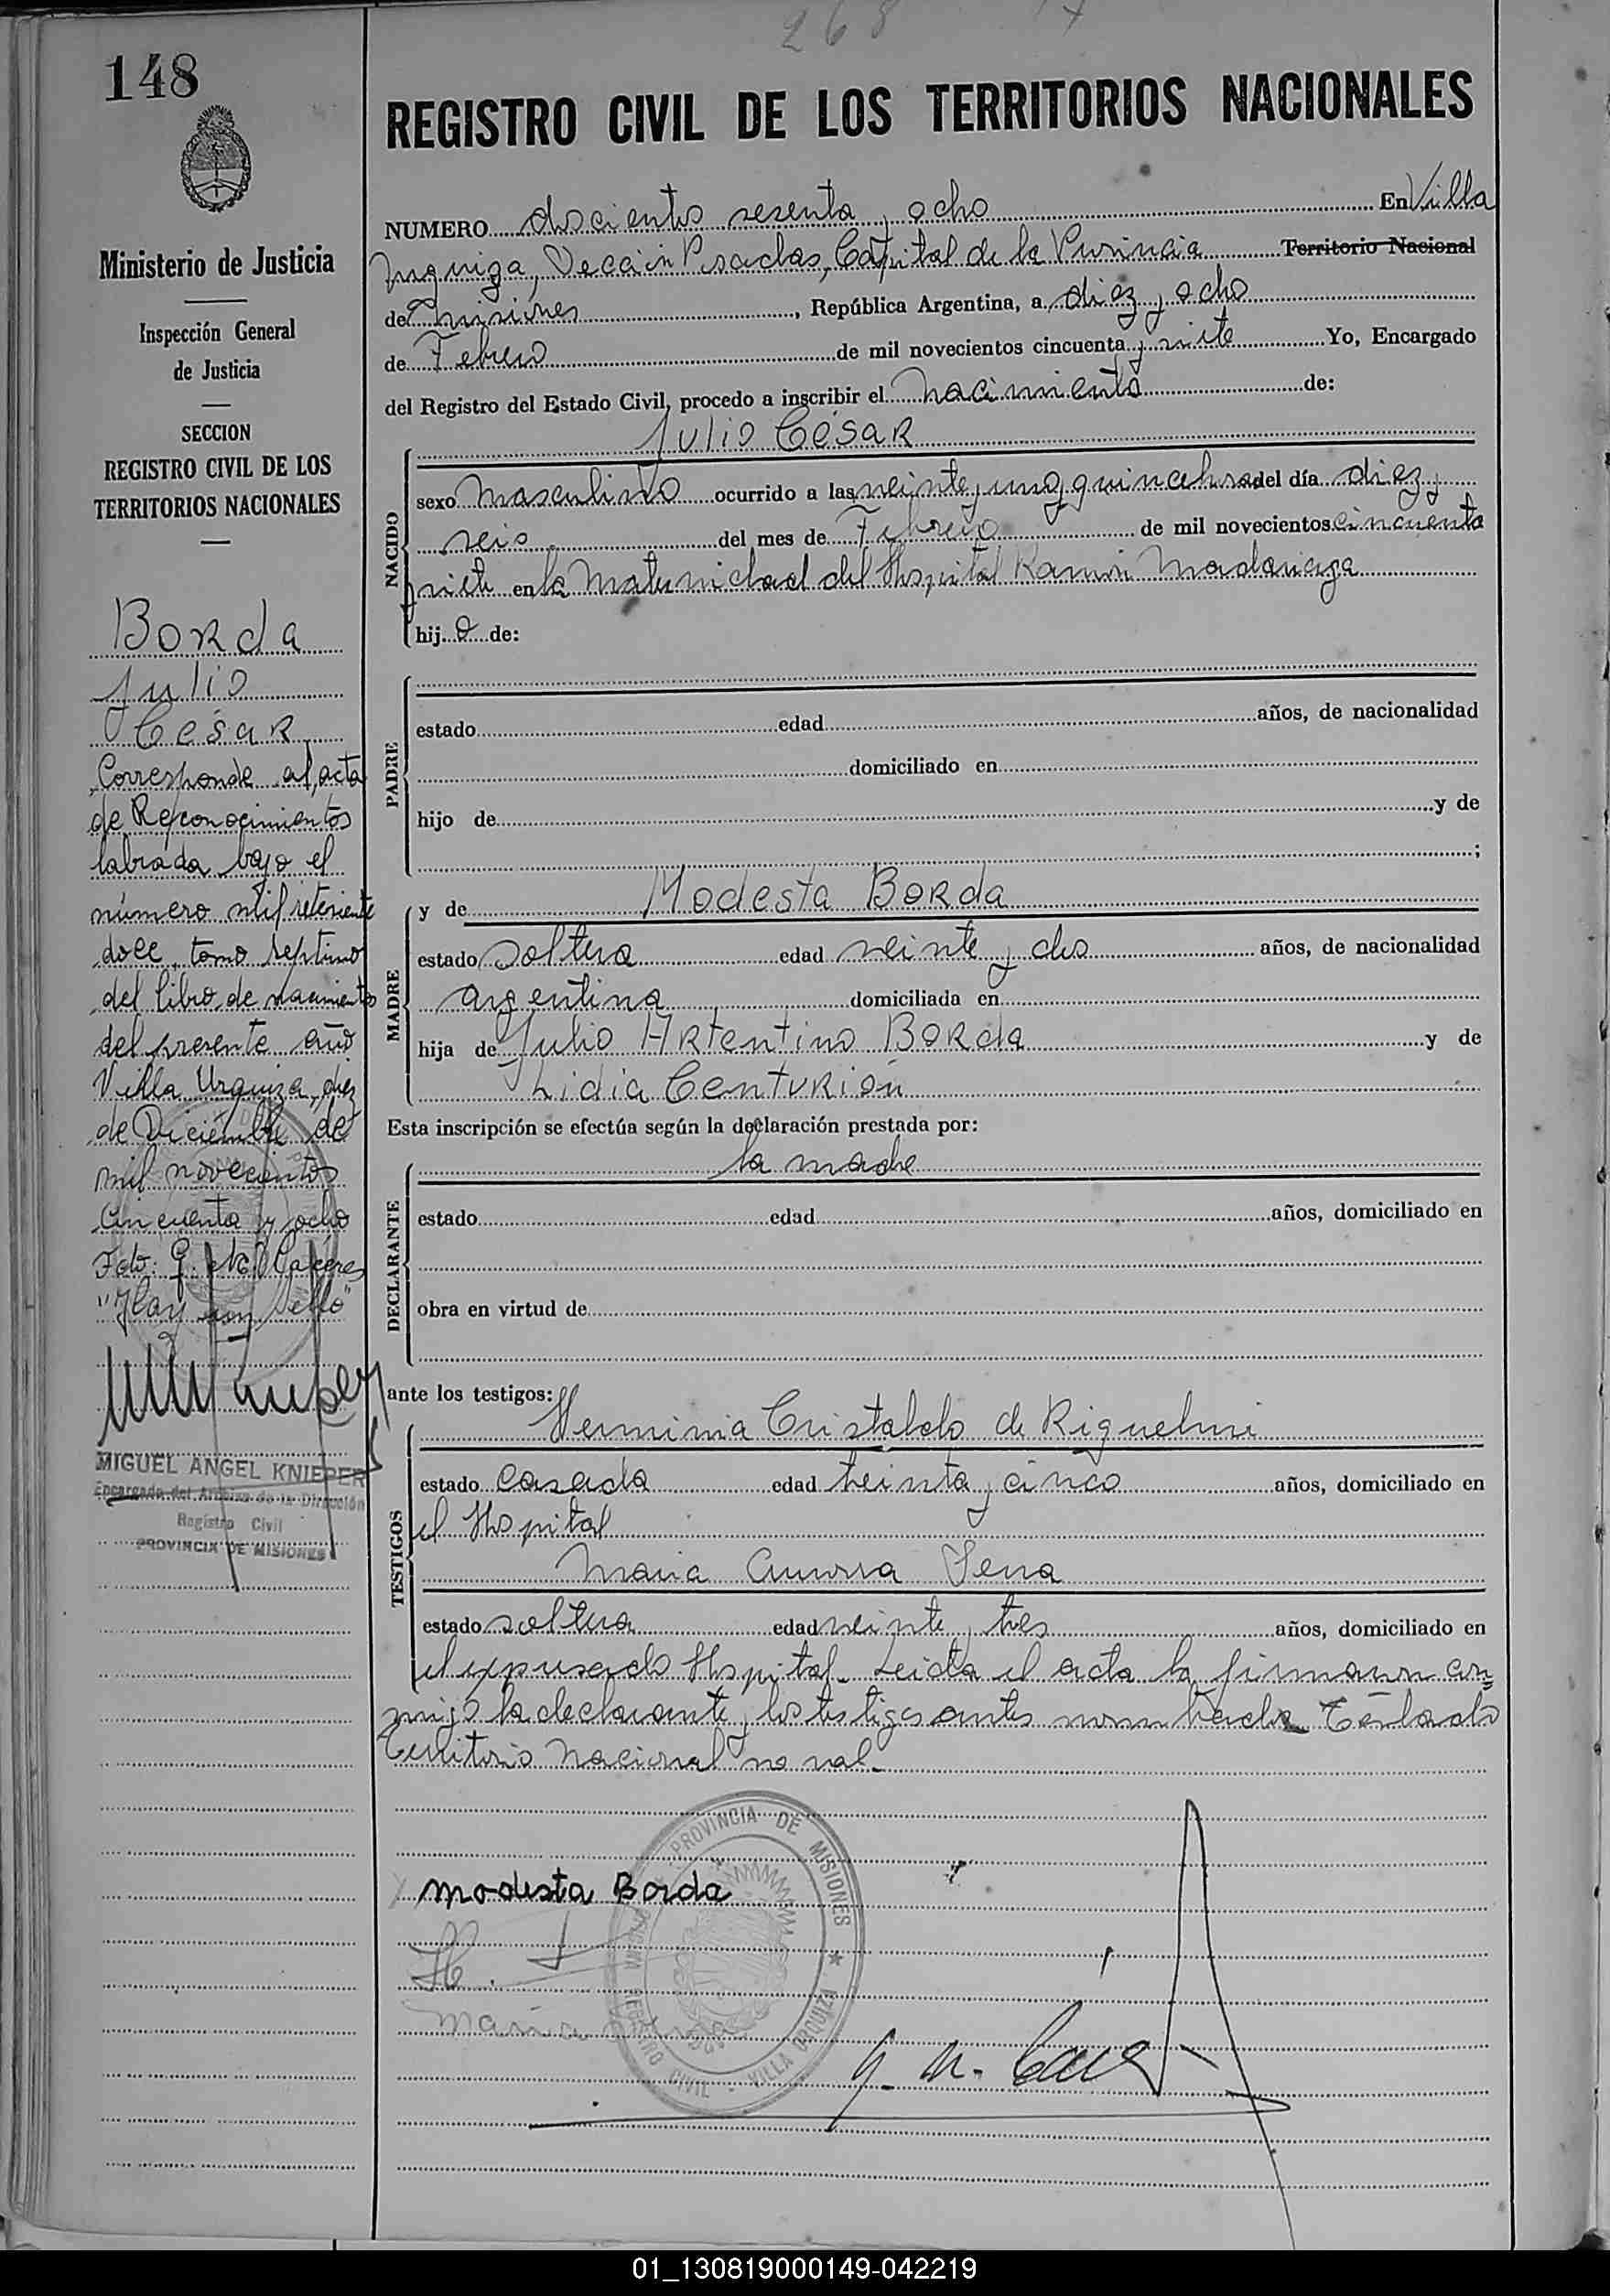 268
148
REGISTRO CIVIL DE LOS TERRITORIOS NACIONALES
Ministerio de Justicia
Inspección General
de Justicia
SECCION
REGISTRO CIVIL DE LOS
TERRITORIOS NACIONALES
Borda
Julio
César
Corresponde al acta
de Reconocimientos
labrada bajo el
número mil setesciento
doce, tomo septimo
del libro de nacimientos
del presente año
Villa Urquiza, diez
de Diciembre de
mil novecientos
cincuenta y ocho
Fdo: G. N. Caceres
"Hay un sello"
MIGUEL ANGEL KNIEPER
Encargado del Archivo de la Dirección
Registro Civil
PROVINCIA DE MISIONES
NUMERO doscientos sesenta y ocho En Villa
Urquiza, Sección Posadas, Capital de la Provincia Territorio Nacional
de Misiones, República Argentina, a diez y ocho
de Febrero de mil novecientos cincuenta y siete Yo, Encargado
del Registro del Estado Civil, procedo a inscribir el nacimiento de:
NACIDO
Julio César
sexo masculino ocurrido a las veinte y una y quince horas del día diez y
seis del mes de Febrero de mil novecientos cincuenta
y siete en la Maternidad del Hospital Ramón Madariaga
hijo de:
PADRE
estado edad años, de nacionalidad
domiciliado en
hijo de y de
;
MADRE
y de Modesta Borda
estado soltera edad veinte y dos años, de nacionalidad
argentina domiciliada en
hija de Julio Artentino Borda y de
Lidia Centurión
Esta inscripción se efectúa según la declaración prestada por:
DECLARANTE
la madre
estado edad años, domiciliado en
obra en virtud de
ante los testigos:
TESTIGOS
Herminia Cristaldo de Riquelme
estado casada edad treinta y cinco años, domiciliado en
el Hospital
Maria Aurora Sena
estado soltera edad veinte y tres años, domiciliado en
el expresado Hospital. Leida el acta la firmaron con
migo la declarante y los testigos antes nombrados Téstado
Territorio Nacional no vale.
Modesta Borda
H.
Maria
PROVINCIA DE MISIONES
REGISTRO CIVIL - VILLA URQUIZA